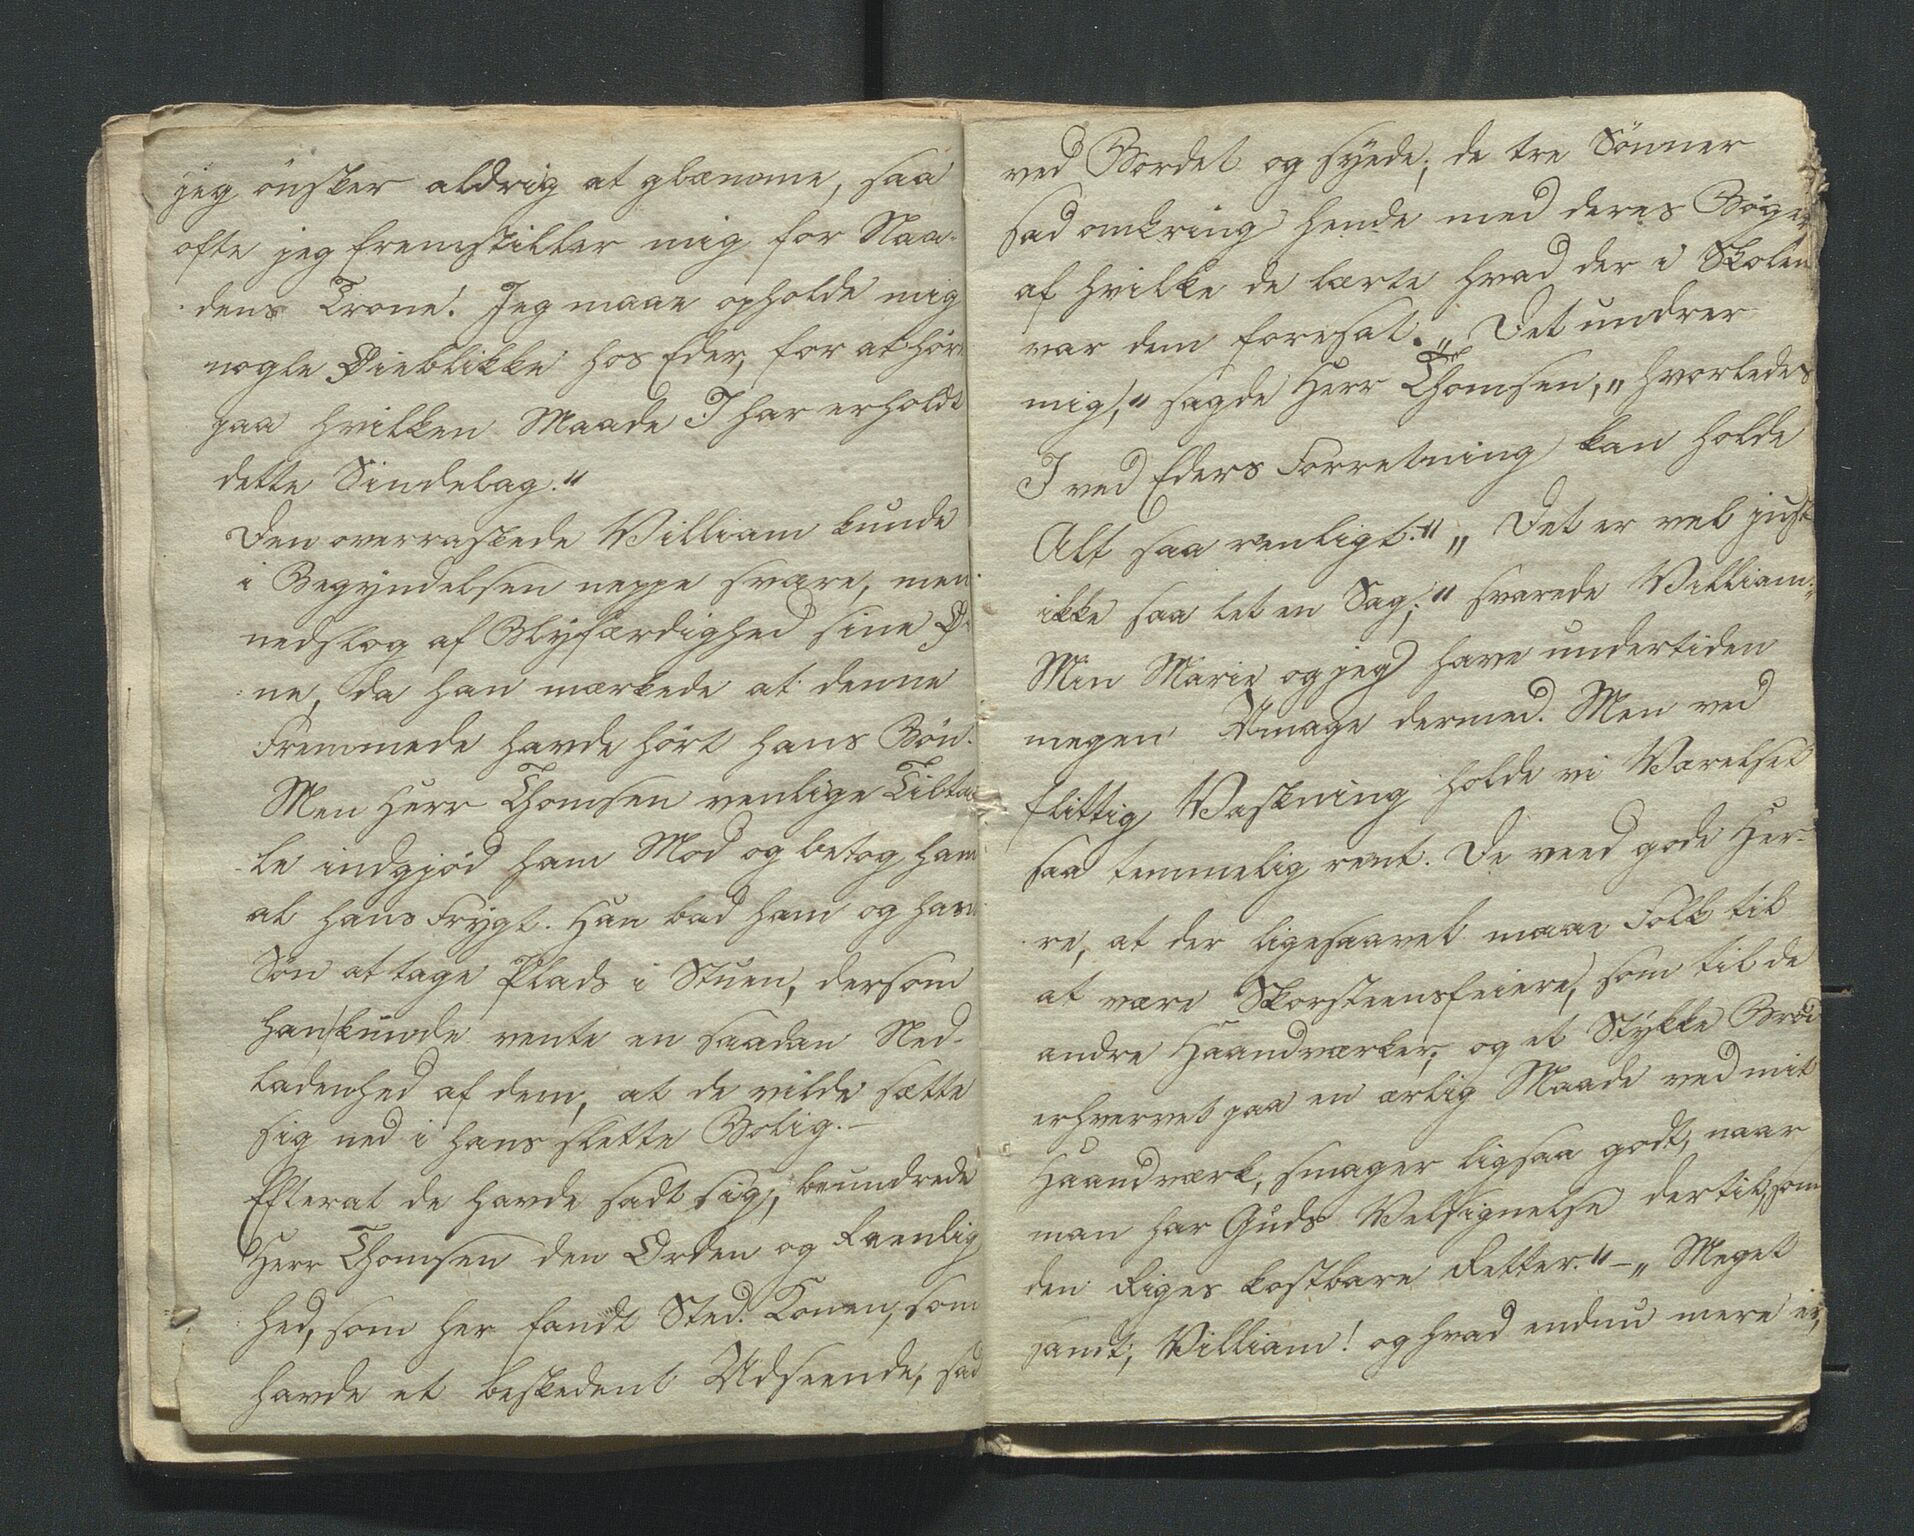 jeg ønsker aldrig at glemme, saa
ofte jeg fremstiller mig for Naa-
dens Trone. Jeg maae opholde mig
nogle Øieblikke hos Eder, for at høre
paa hvilken Maade I har erholdt
dette Sindelag."
Den overraskede Villiam kunde
i Begyndelsen neppe svare, men
nedslog af Blyfærdighed sine Ø-
ne, da han mærkede at denne
Fremmede havde hørt hans Bøn.
Men Herr Thomsen venlige Tilta-
le indgjød ham Mod og betog ham
al hans Frygt. Han bad ham og hans
Søn at tage Plads i Stuen, dersom
han kunde vente en saadan Ned-
ladenhed af dem, at de vilde sætte
sig ned i hans slette Bolig.—
Efterat de havde sadt sig, beundrede
Herr Thomsen den Orden og Reenlig
hed, som her fandt Sted. Konen, som
havde et beskedent Udseende, sad
ved Bordet og syede; de tre Sønner
sad omkring hende med deres Bøger
af hvilke de lærte hvad der i Skolen
var dem foresat. „Det undrer
mig," sagde Herr Thomsen, „hvorledes
I ved Eders Forretning kan holde
Alt saa renligt." „Det er vel just
ikke saa let en Sag;" svarede Villiam „
Min Marie og jeg have undertiden
megen Umage dermed. Men ved
flittig Vaskning holde vi Værelset
saa temmelig rent. De veed gode Her-
re, at der ligesaavel maae Folk til
at være Skorsteensfeiere, som til de
andre Haandværker; og et Stykke Brød
erhvervet paa en ærlig Maade ved mit
Haandværk, smager ligsaa godt, naar
man har Guds Velsignelse dertil, som
den Riges kostbare Retter."—„Meget
sandt, Villiam! og hvad endnu mere er,